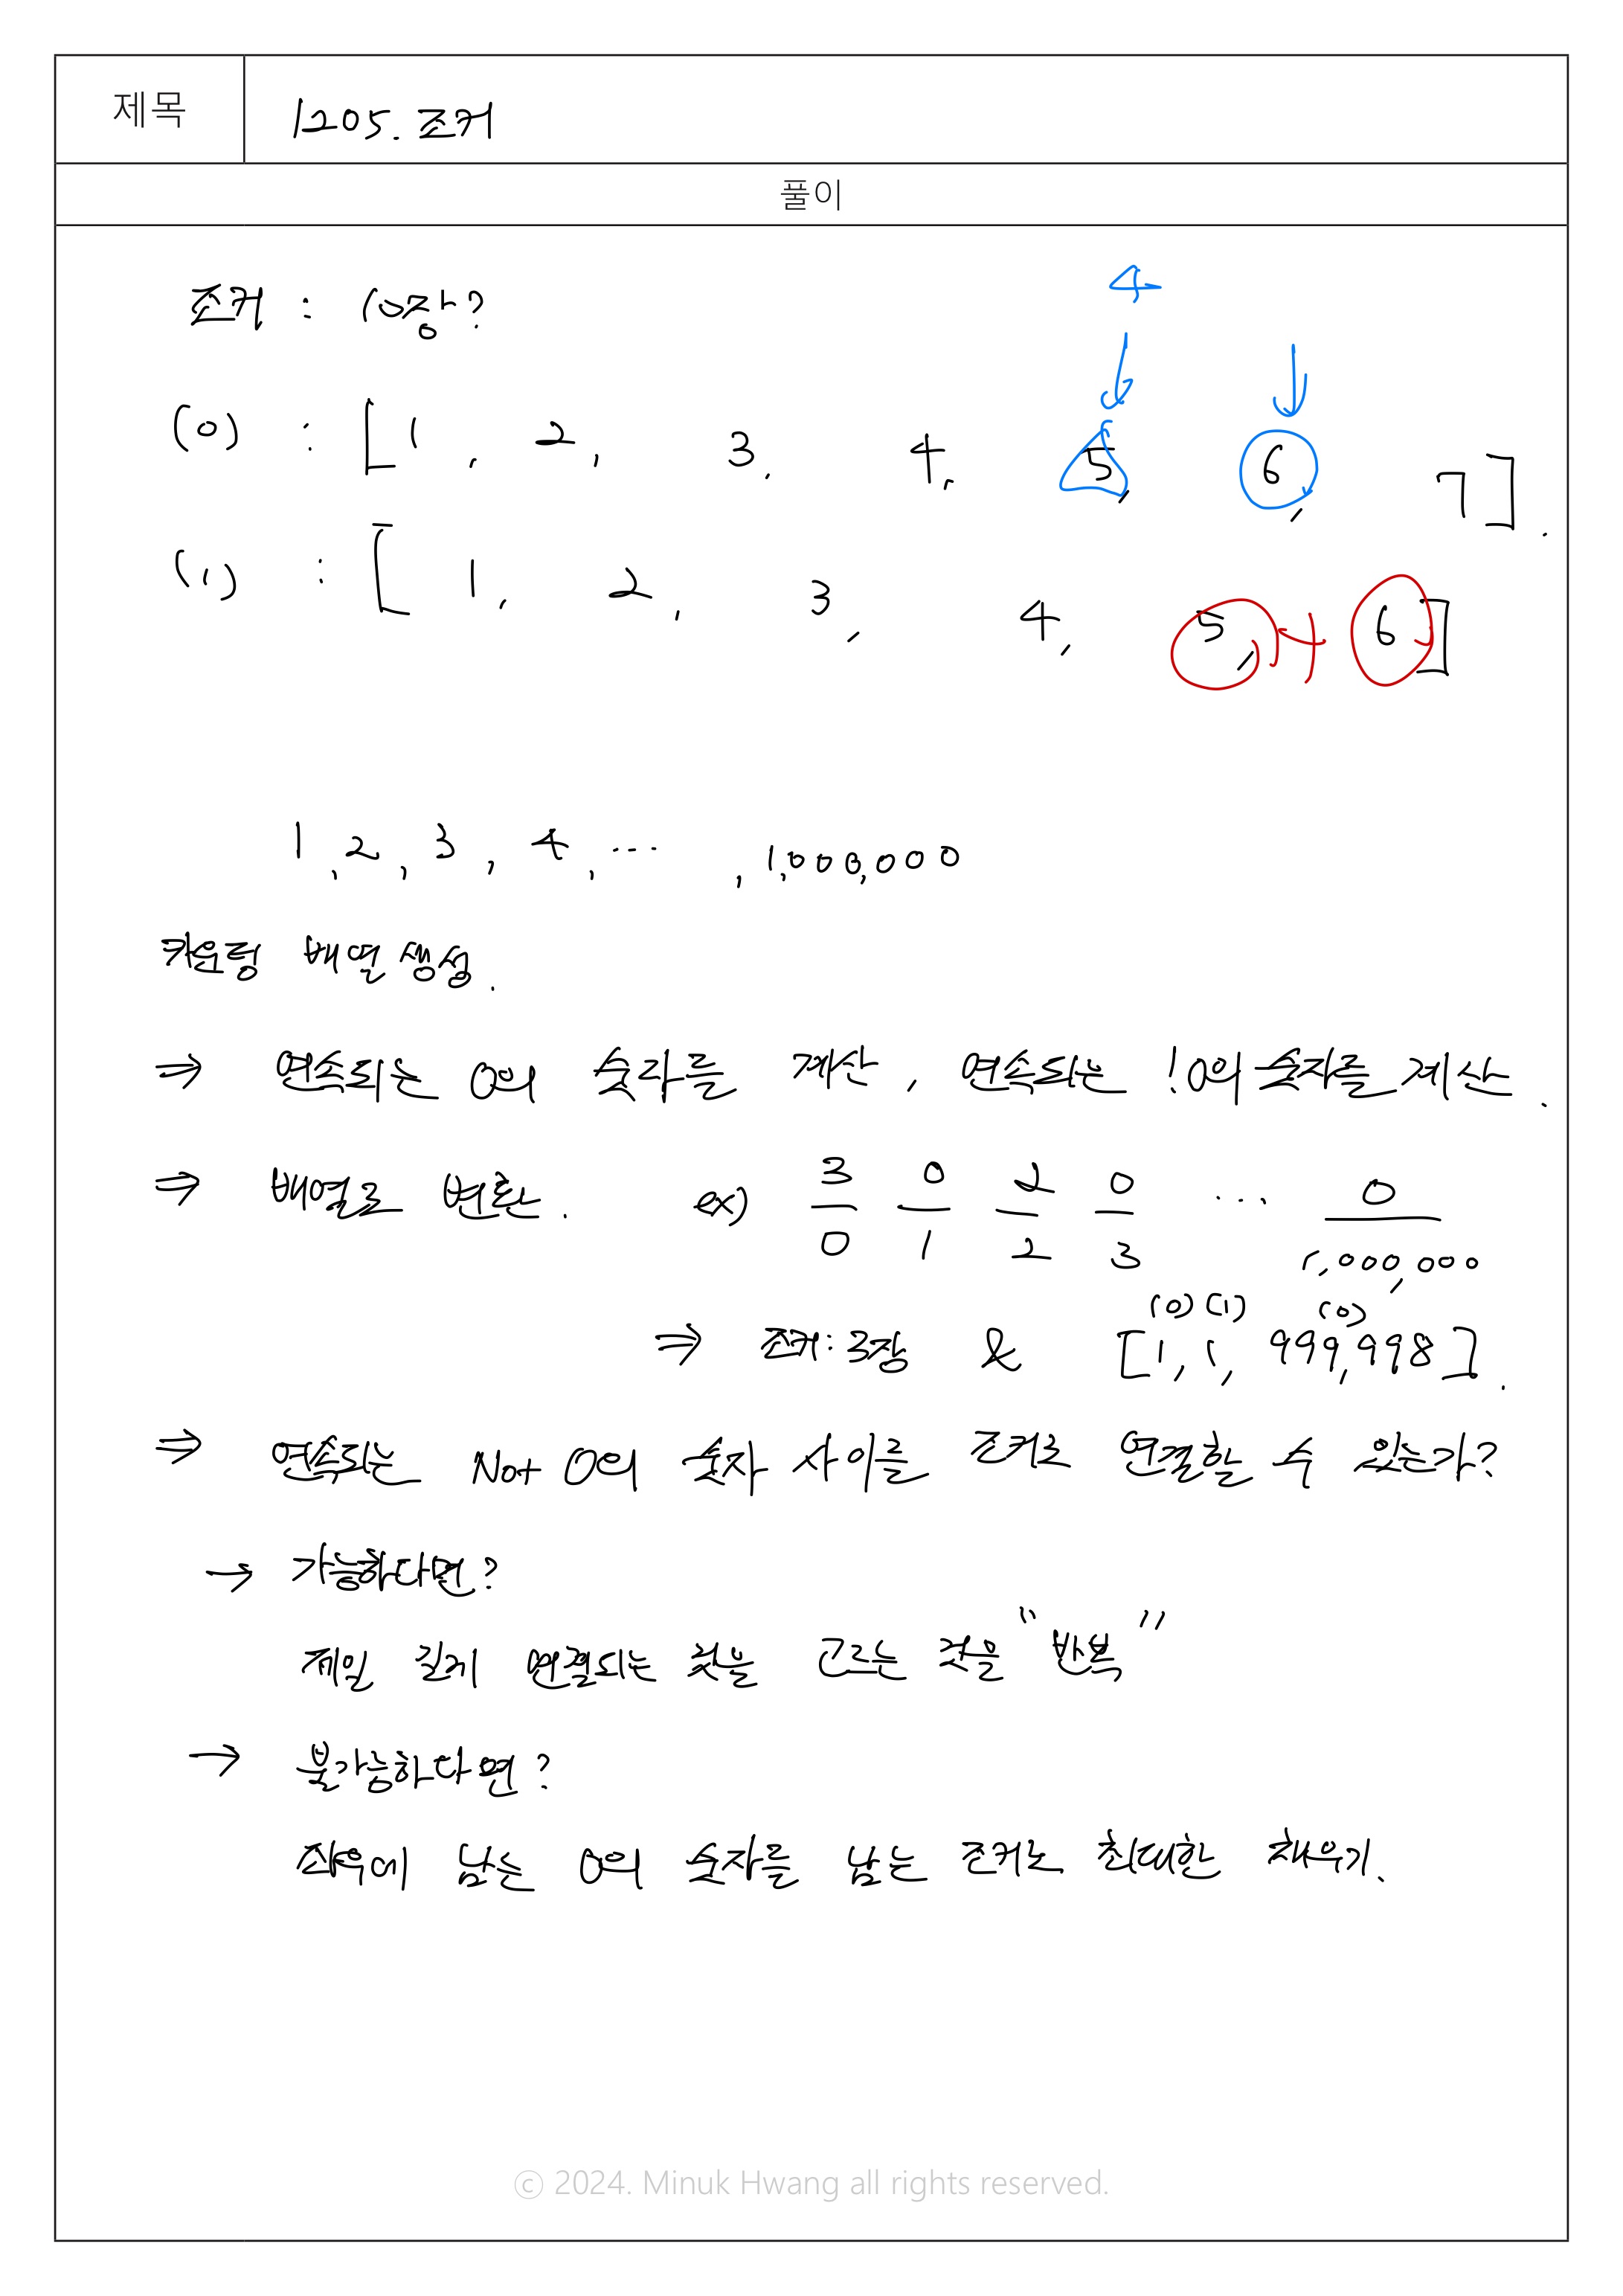 제목 1205. 조커
풀이
조커 : 10장?
4
(0) : [1, 2, 3, 4, 5, 6, 7].
(1) : [1, 2, 3, 4, 5, + 6]
1, 2, 3, 4, ... , 1,000,000
카운팅 배열 생성.
⇒ 연속되는 0의 숫자를 계산, 연속되는 !0의 숫자를 계산.
⇒ 배열로 변환. ex) 3/0 0/1 2/2 0/3 ... 0/1,000,000
(0) (1) (0)
⇒ 조커: 3장 & [1, 1, 999,998].
⇒ 연속되는 Not 0의 숫자 사이를 조커로 연결할 수 있는가?
→ 가능하다면?
제일 길게 연결되는 것을 고르는 것을 "반복"
→ 불가능하다면?
좌우에 남는 0의 숫자를 남는 조커로 최대한 채우기.
© 2024. Minuk Hwang all rights reserved.